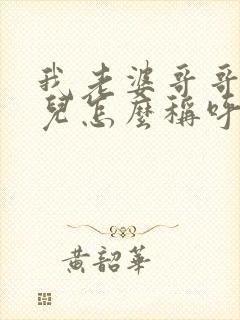 我老婆哥哥
兒怎麼稱呼
黃韶華